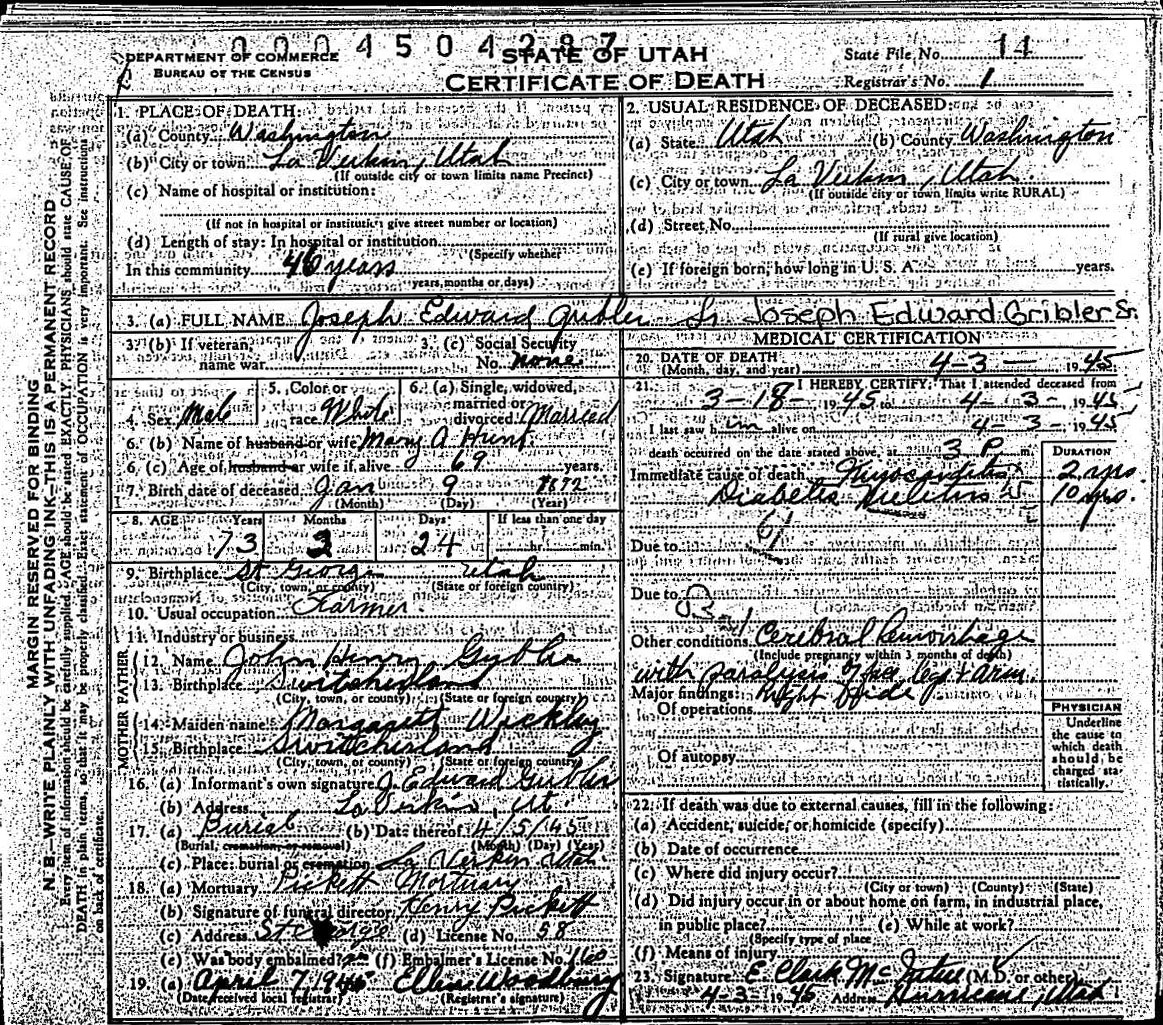 0004504287
DEPARTMENT OF COMMERCE
BUREAU OF THE CENSUS
STATE OF UTAH
CERTIFICATE OF DEATH
State File No. 14
Registrar's No. 1
MARGIN RESERVED FOR BINDING
N. B.—WRITE PLAINLY WITH UNFADING INK—THIS IS A PERMANENT RECORD
Every item of information should be carefully supplied. AGE should be stated EXACTLY. PHYSICIANS should state CAUSE OF
DEATH in plain terms, so that it may be properly classified. Exact statement of OCCUPATION is very important. See instructions
on back of certificate.
1. PLACE OF DEATH:
(a) County Washington
(b) City or town La Verkin, Utah
(If outside city or town limits name Precinct)
(c) Name of hospital or institution:
(If not in hospital or institution give street number or location)
(d) Length of stay: In hospital or institution
(Specify whether
In this community 46 years
years, months or days)
2. USUAL RESIDENCE OF DECEASED:
(a) State Utah (b) County Washington
(c) City or town La Verkin, Utah
(If outside city or town limits write RURAL)
(d) Street No.
(If rural give location)
(e) If foreign born, how long in U. S. A. years.
3. (a) FULL NAME Joseph Edward Gribler Sr. Joseph Edward Gribler Sr.
3. (b) If veteran, name war
3. (c) Social Security No. none
4. Sex Male
5. Color or race White
6. (a) Single, widowed, married or divorced Married
6. (b) Name of husband or wife Mary A Hunt
6. (c) Age of husband or wife if alive 69 years.
7. Birth date of deceased Jan 9 1872
(Month) (Day) (Year)
8. AGE Years Months Days If less than one day
73 2 24 min.
9. Birthplace St George Utah
(City, town, or county) (State or foreign country)
10. Usual occupation Farmer
11. Industry or business
FATHER
12. Name John Henry Gubler
13. Birthplace Switcherland
(City, town, or county) (State or foreign country)
MOTHER
14. Maiden name Margarett Wickley
15. Birthplace Switcherland
(City, town, or county) (State or foreign country)
16. (a) Informant's own signature J. Edward Gubler
(b) Address La Verkin, Ut.
17. (a) Burial (b) Date thereof 4/5/45
(Burial, cremation, or removal) (Month) (Day) (Year)
(c) Place: burial or cremation La Verkin Utah
18. (a) Mortuary Pickett Mortuary
(b) Signature of funeral director Henry Pickett
(c) Address St George (d) License No. 58
(e) Was body embalmed? (f) Embalmer's License No. 160
19. (a) April 7, 1945 Ellen Woodbury
(Date received local registrar) (Registrar's signature)
MEDICAL CERTIFICATION
20. DATE OF DEATH
(Month, day, and year) 4-3- 1945
21. I HEREBY CERTIFY, That I attended deceased from
3-18- 1945 to 4-3- 1945
I last saw him alive on 4-3- 1945
death occurred on the date stated above, at 3 P m.
DURATION
Immediate cause of death Myocarditis 2 yrs.
Diabetes Mellitus 10 yrs.
61
Due to
Due to
83-1
Other conditions Cerebral Hemorrhage
(Include pregnancy within 3 months of death)
with paralysis of leg & Arm
Major findings: Right Side
Of operations
Of autopsy
PHYSICIAN
Underline
the cause to
which death
should be
charged sta-
tistically.
22. If death was due to external causes, fill in the following:
(a) Accident, suicide, or homicide (specify)
(b) Date of occurrence
(c) Where did injury occur?
(City or town) (County) (State)
(d) Did injury occur in or about home on farm, in industrial place,
in public place? (e) While at work?
(Specify type of place
(f) Means of injury
23. Signature E Clark Mc (M.D. or other)
4-3 1945 Address Hurricane, Utah